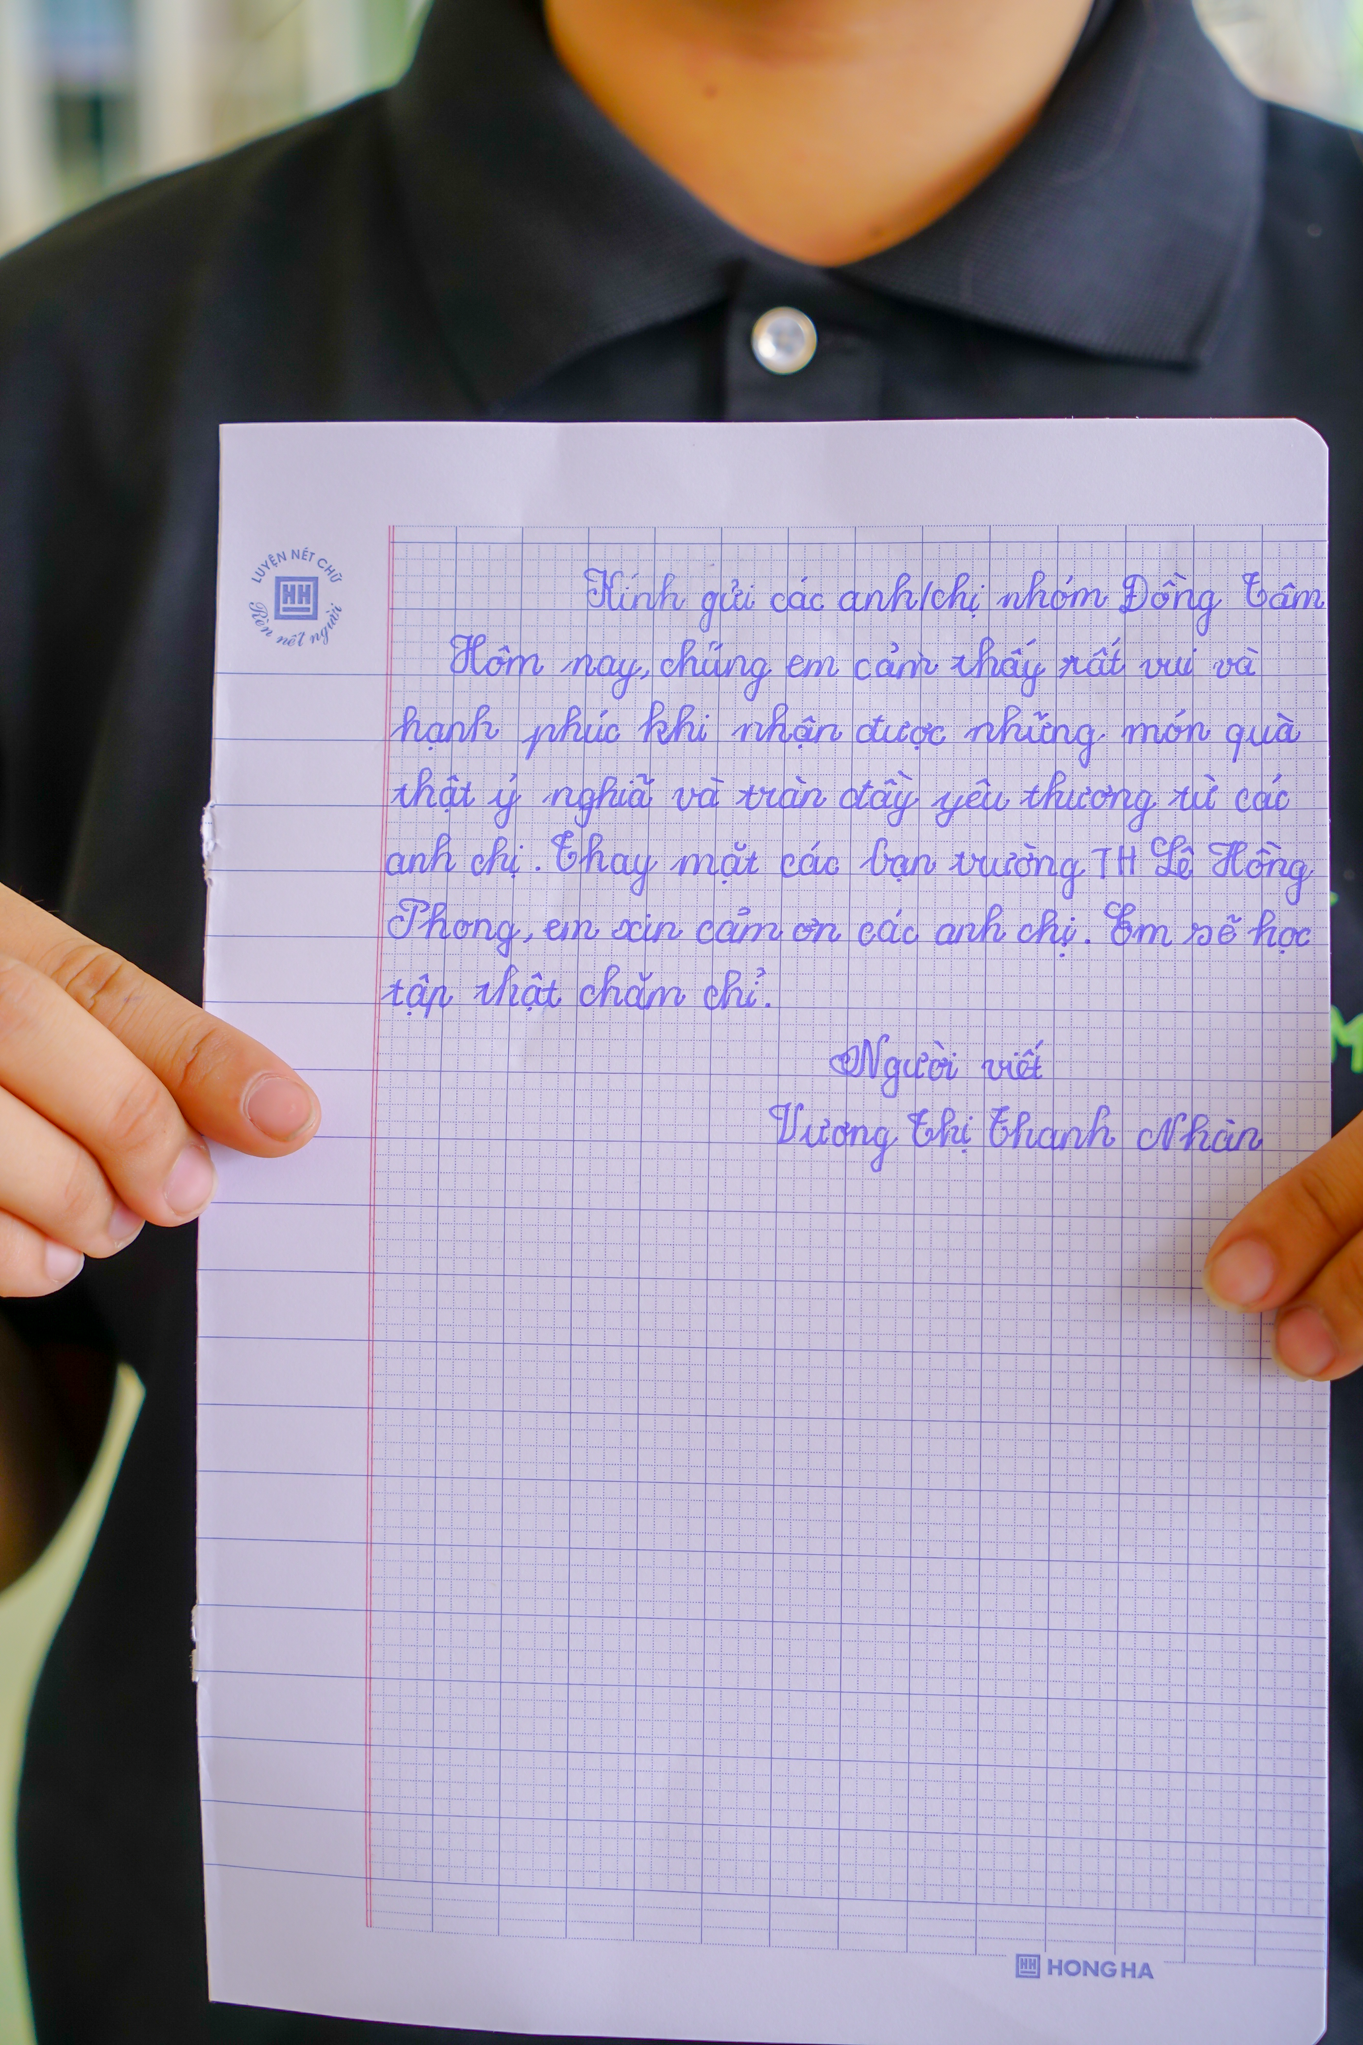 LUYỆN NÉT CHỮ
HH
Rèn nết người
Kính gửi các anh/chị nhóm Đồng Tâm
Hôm nay, chúng em cảm thấy rất vui và
hạnh phúc khi nhận được những món quà
thật ý nghĩa và tràn đầy yêu thương từ các
anh chị. Thay mặt các bạn trường TH Lê Hồng
Phong, em xin cảm ơn các anh chị. Em sẽ học
tập thật chăm chỉ.
Người viết
Vương Thị Thanh Nhàn
HH HONG HA